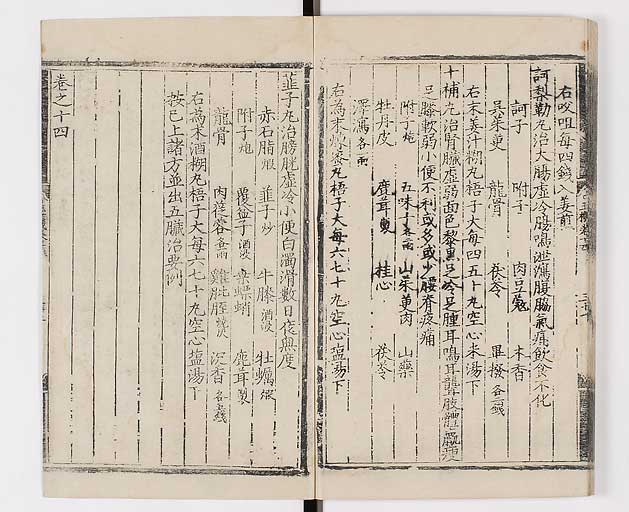 右㕮咀每四錢入姜煎
訶梨勒丸治大腸虛冷腸鳴泄瀉腹脇氣痛飮食不化
訶子 附子 肉豆蔻 木香
吳茱萸 龍骨 茯苓 蓽撥各二錢
右末姜汁糊丸梧子大每四五十丸空心米湯下
十補丸治腎臟虛弱面色黧黑足冷足腫耳鳴耳聾肢體羸瘦
足膝軟弱小便不利或多或少腰脊疼痛
附子炮 五味子各二兩 山茱萸肉 山藥
牡丹皮 鹿茸製 桂心 茯苓
澤瀉各一兩
右為末煉蜜丸梧子大每六七十丸空心塩湯下
韭子丸治膀胱虛冷小便白濁滑數日夜無度
赤石脂煆 韭子炒 牛膝酒浸 牡蠣煆
附子炮 覆盆子酒浸 桑螵蛸 鹿茸製
龍骨 肉蓯蓉各一兩 雞膍胵 沉香各五錢
右為末酒糊丸梧子大每六七十丸空心塩湯下
按已上諸方並出五臟治要例
卷之十四